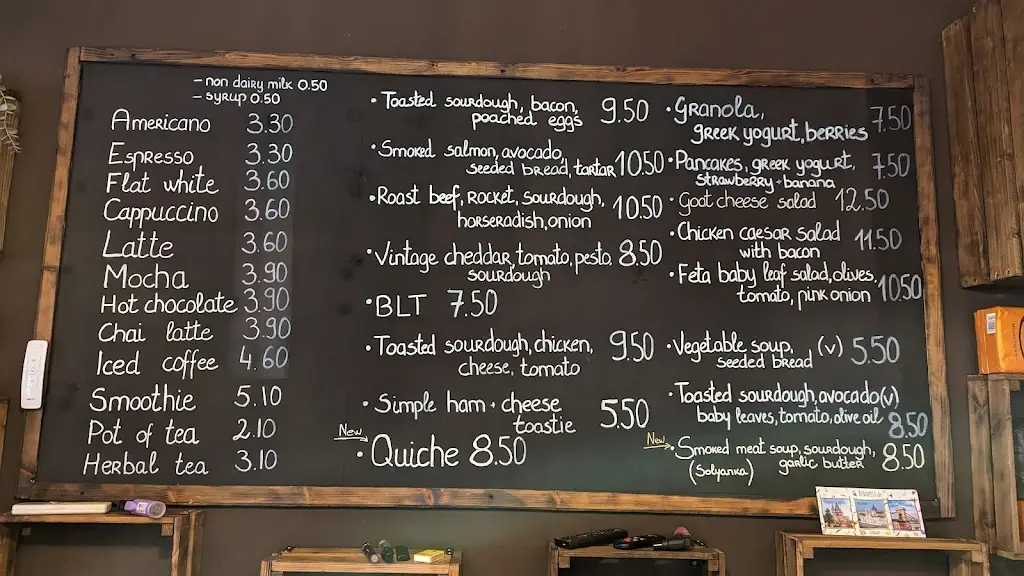 - non dairy milk 0.50
- syrup 0.50
Americano 3.30
Espresso 3.30
Flat white 3.60
Cappuccino 3.60
Latte 3.60
Mocha 3.90
Hot chocolate 3.90
Chai latte 3.90
Iced coffee 4.60
Smoothie 5.10
Pot of tea 2.10
Herbal tea 3.10
• Toasted sourdough, bacon, 9.50
poached eggs
• Smoked salmon, avocado,
seeded bread, tartar 10.50
• Roast beef, rocket, sourdough, 10.50
horseradish, onion
• Vintage cheddar, tomato, pesto 8.50
sourdough
• BLT 7.50
• Toasted sourdough, chicken, 9.50
cheese, tomato
• Simple ham + cheese 5.50
toastie
New
• Quiche 8.50
• Granola, 7.50
greek yogurt, berries
• Pancakes, greek yogurt, 7.50
strawberry + banana
• Goat cheese salad 12.50
• Chicken caesar salad 11.50
with bacon
• Feta baby leaf salad, olives,
tomato, pink onion 10.50
• Vegetable soup, (v) 5.50
seeded bread
• Toasted sourdough, avocado (v)
baby leaves, tomato, olive oil 8.50
New
• Smoked meat soup, sourdough, 8.50
(Solyanka) garlic butter